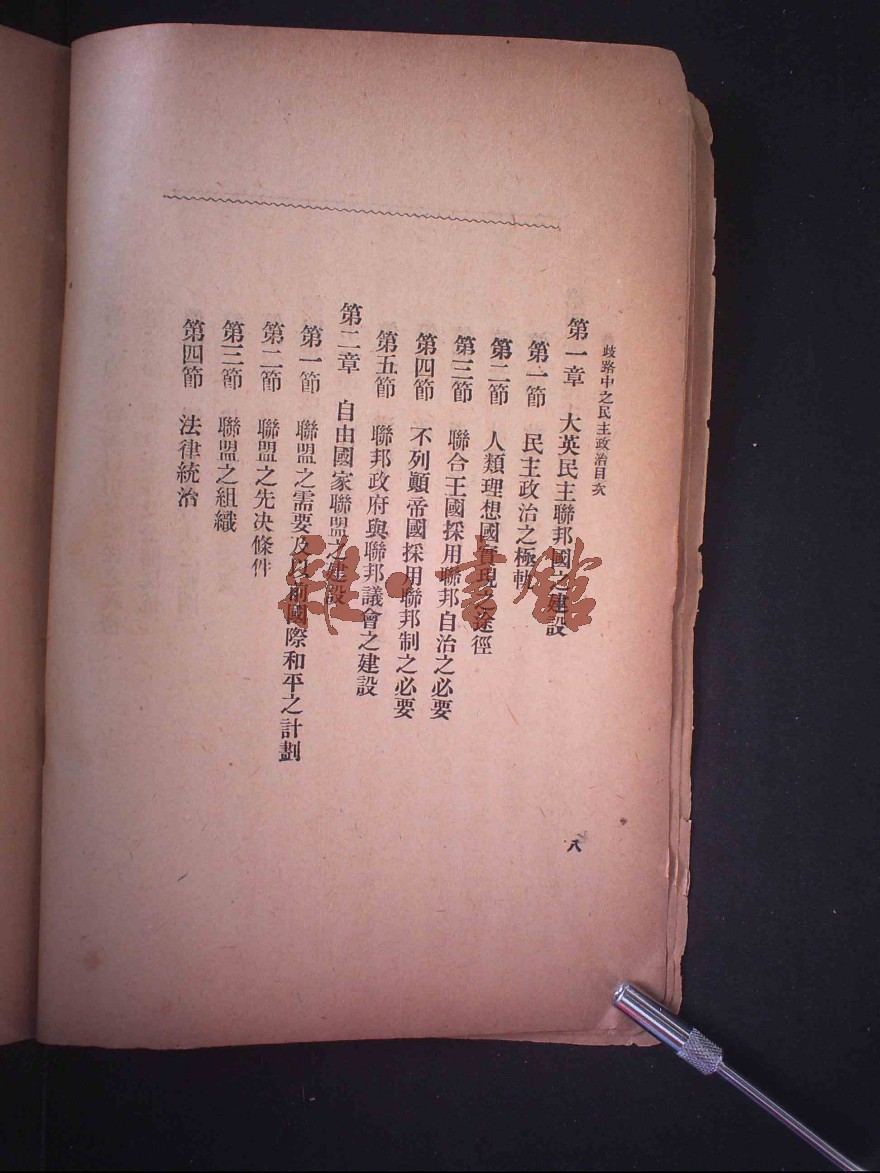 歧路中之民主政治目次
第一章 大英民主聯邦國之建設
第一節 民主政治之極軌
第二節 人類理想國實現之途徑
第三節 聯合王國採用聯邦自治之必要
第四節 不列顚帝國採用聯邦制之必要
第五節 聯邦政府與聯邦議會之建設
第二章 自由國家聯盟之建設
第一節 聯盟之需要及以前國際和平之計劃
第二節 聯盟之先决條件
第三節 聯盟之組織
第四節 法律統治
八
書館